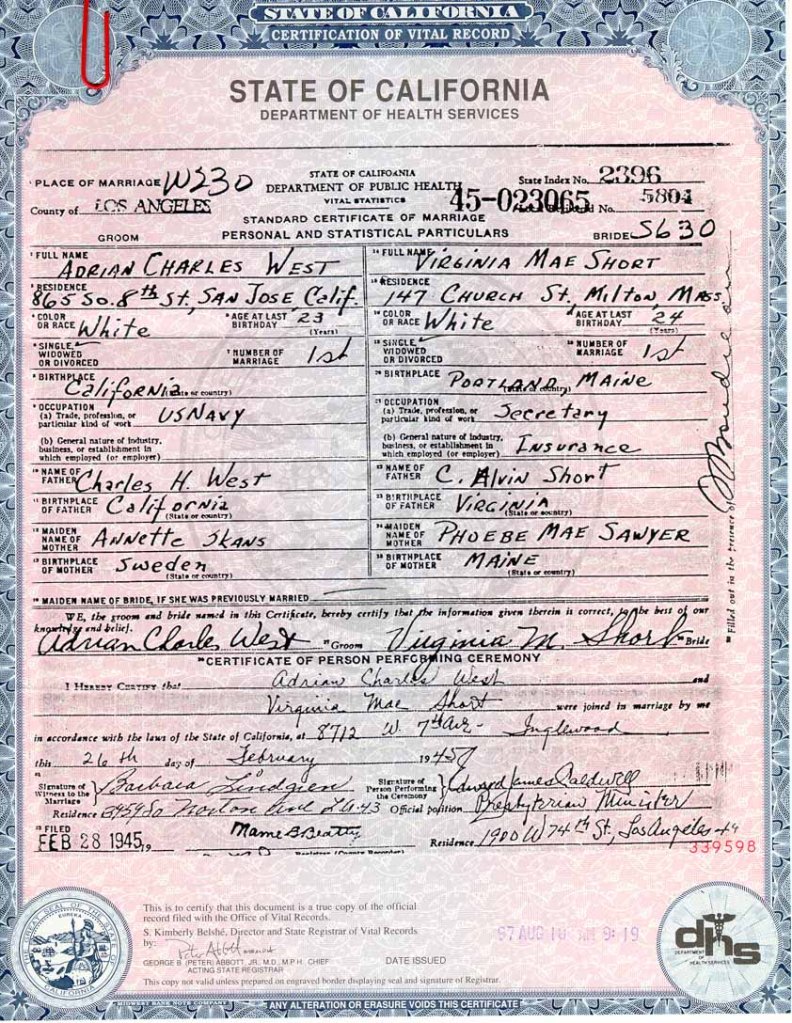 STATE OF CALIFORNIA
CERTIFICATION OF VITAL RECORD
STATE OF CALIFORNIA
DEPARTMENT OF HEALTH SERVICES
PLACE OF MARRIAGE W230 STATE OF CALIFORNIA State Index No. 2396
DEPARTMENT OF PUBLIC HEALTH
VITAL STATISTICS 45-023065
County of LOS ANGELES No. 5804
STANDARD CERTIFICATE OF MARRIAGE
GROOM PERSONAL AND STATISTICAL PARTICULARS BRIDE S630
1 FULL NAME ADRIAN CHARLES WEST 14 FULL NAME VIRGINIA MAE SHORT
2 RESIDENCE 865 So. 8th St, SAN JOSE Calif. 15 RESIDENCE 147 CHURCH St, Milton, MASS
3 COLOR OR RACE White 4 AGE AT LAST BIRTHDAY 23 (Years) 16 COLOR OR RACE White 17 AGE AT LAST BIRTHDAY 24 (Years)
5 SINGLE, WIDOWED OR DIVORCED 7 NUMBER OF MARRIAGE 1st 18 SINGLE, WIDOWED OR DIVORCED 19 NUMBER OF MARRIAGE 1st
8 BIRTHPLACE California (State or country) 20 BIRTHPLACE PORTLAND, MAINE (State or country)
9 OCCUPATION 21 OCCUPATION
(a) Trade, profession, or particular kind of work US NAVY (a) Trade, profession, or particular kind of work Secretary
(b) General nature of industry, business, or establishment in which employed (or employer) (b) General nature of industry, business, or establishment in which employed (or employer) Insurance
10 NAME OF FATHER Charles H. West 22 NAME OF FATHER C. Alvin Short
11 BIRTHPLACE OF FATHER California (State or country) 23 BIRTHPLACE OF FATHER VIRGINIA (State or country)
12 MAIDEN NAME OF MOTHER ANNETTE SKANS 24 MAIDEN NAME OF MOTHER PHOEBE MAE SAWYER
13 BIRTHPLACE OF MOTHER Sweden (State or country) 25 BIRTHPLACE OF MOTHER MAINE (State or country)
Filled out in the presence of
MAIDEN NAME OF BRIDE, IF SHE WAS PREVIOUSLY MARRIED
WE, the groom and bride named in this Certificate, hereby certify that the information given therein is correct, to the best of our
knowledge and belief.
Adrian Charles West Groom Virginia M. Short Bride
CERTIFICATE OF PERSON PERFORMING CEREMONY
I HEREBY CERTIFY that Adrian Charles West and
Virginia Mae Short were joined in marriage by me
in accordance with the laws of the State of California, at 8712 W. 7th Ave - Inglewood
this 26th day of February 1945
Signature of Witness to the Marriage Barbara Lindgren Signature of Person Performing the Ceremony Edward James Caldwell
Residence Norton Official position Presbyterian Minister
FILED FEB 28 1945, 19 Mame B Beatty Residence 1900 W 74th St, Los Angeles - 44
339598
This is to certify that this document is a true copy of the official
record filed with the Office of Vital Records.
S. Kimberly Belshé, Director and State Registrar of Vital Records
by: Peter Abbott
GEORGE B. (PETER) ABBOTT, JR., M.D., M.P.H. CHIEF
ACTING STATE REGISTRAR
DATE ISSUED
97 AUG 10 9:19
This copy not valid unless prepared on engraved border displaying seal and signature of Registrar.
THE GREAT SEAL OF THE STATE OF CALIFORNIA
EUREKA
dhs
DEPARTMENT OF HEALTH SERVICES
MIDWEST BANK NOTE COMPANY
ANY ALTERATION OR ERASURE VOIDS THIS CERTIFICATE